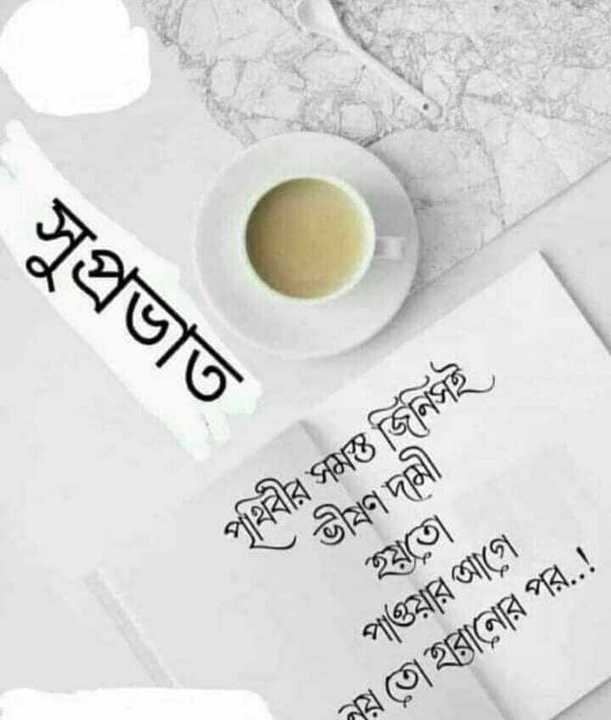 সুপ্রভাত
পৃথিবীর সমস্ত জিনিসই
ভীষণ দামী
হয়তো
পাওয়ার আগে
নয় তো হারানোর পর..!